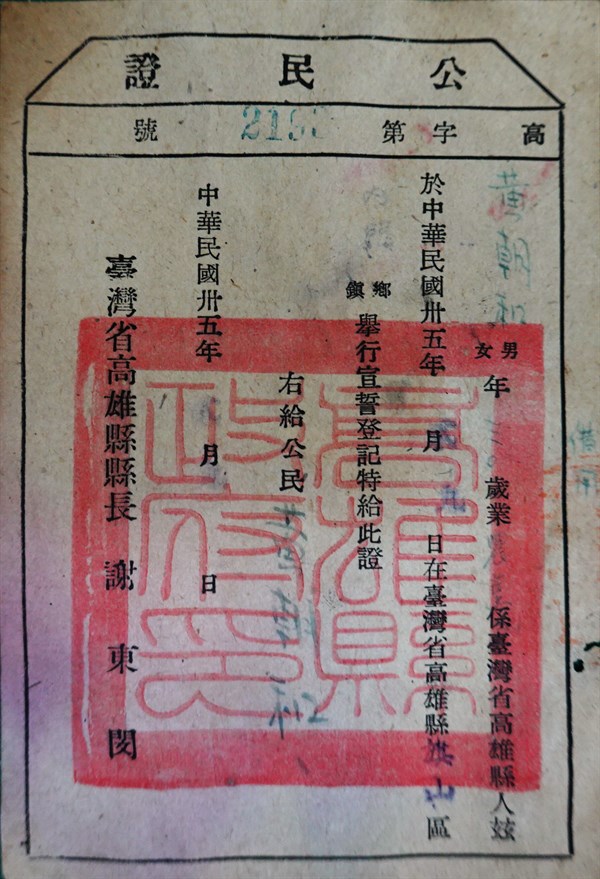 公民證
高字第　號
黃朝和
男
女
年　歲業農　係臺灣省高雄縣人茲
於中華民國卅五年　月　日在臺灣省高雄縣旗山區
內門
鄉
鎮
舉行宣誓登記特給此證
右給公民　黃朝和
中華民國卅五年　月　日
臺灣省高雄縣縣長　謝東閔
高雄縣政府印